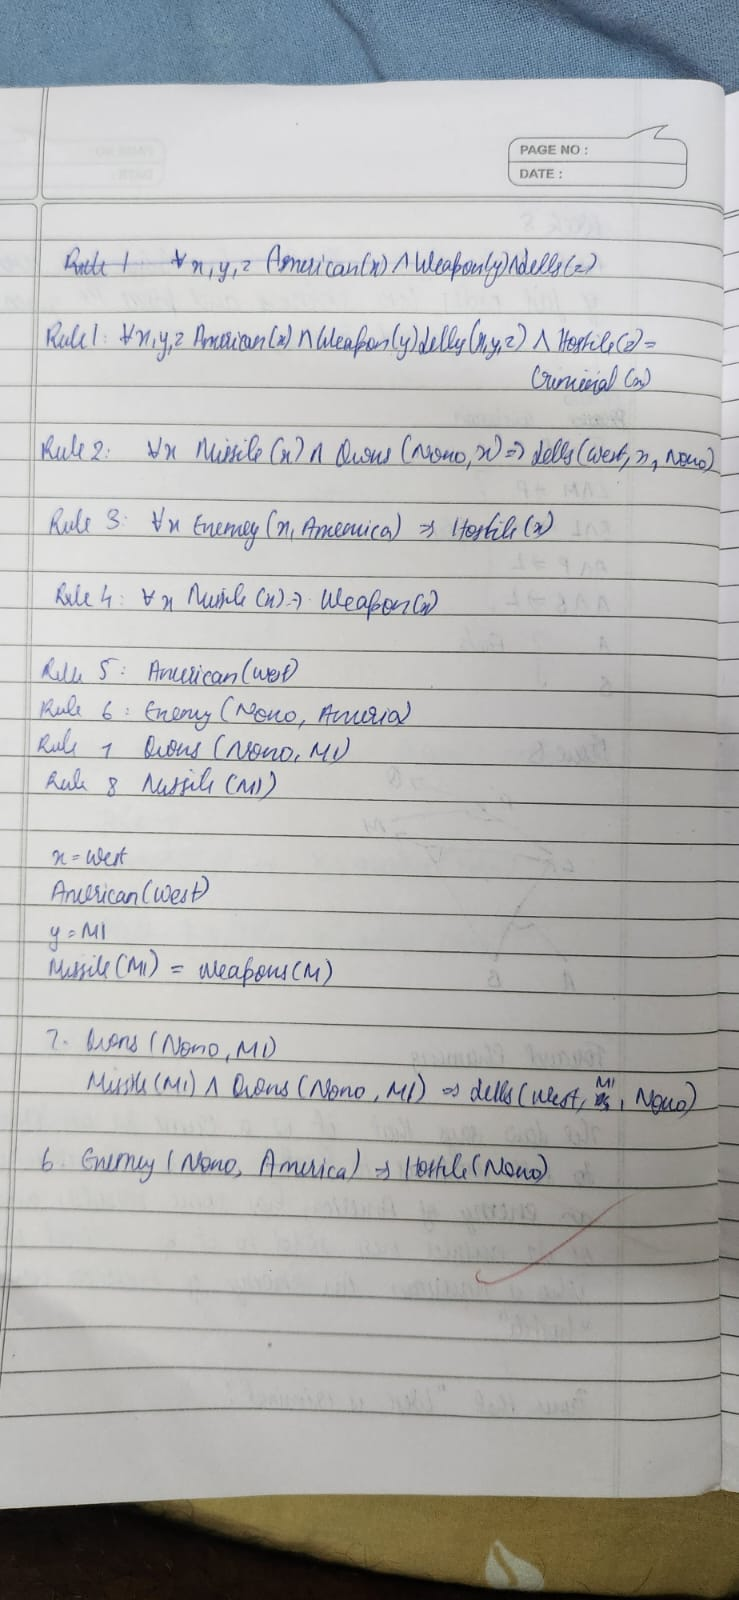 PAGE NO :
DATE :
Rule 1 ∀x,y,z American(x) ∧ Weapon(y) ∧ Sells(z)
Rule 1: ∀x,y,z American(x) ∧ Weapon(y) Sells(x,y,z) ∧ Hostile(z) =
Criminal (x)
Rule 2: ∀x Missile(x) ∧ Owns (Nono, x) => Sells(West, x, Nono)
Rule 3: ∀x Enemey (x, America) => Hostile(x)
Rule 4: ∀x Missile (x) => Weapon(x)
Rule 5: American(West)
Rule 6: Enemy (Nono, America)
Rule 7 Owns (Nono, M1)
Rule 8 Missile (M1)
x = West
American(West)
y = M1
Missile(M1) = Weapons(M)
7. Owns (Nono, M1)
Missile(M1) ∧ Owns (Nono, M1) => Sells(West, M1, Nono)
6. Enemey (Nono, America) => Hostile(Nono)